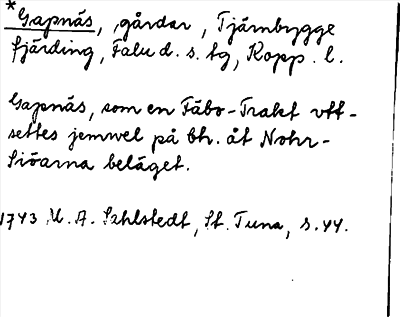 *Gapnäs, gårdar, Tjärnbygge
fjärding, Falu d. s. tg, Kopp. l.
Gapnäs, som en Fäbo-Trakt utt-
settes jemwel på bh. åt Nohr-
Siöarna beläget.
1743 M. A. Sahlstedt, St. Tuna, s. 44.